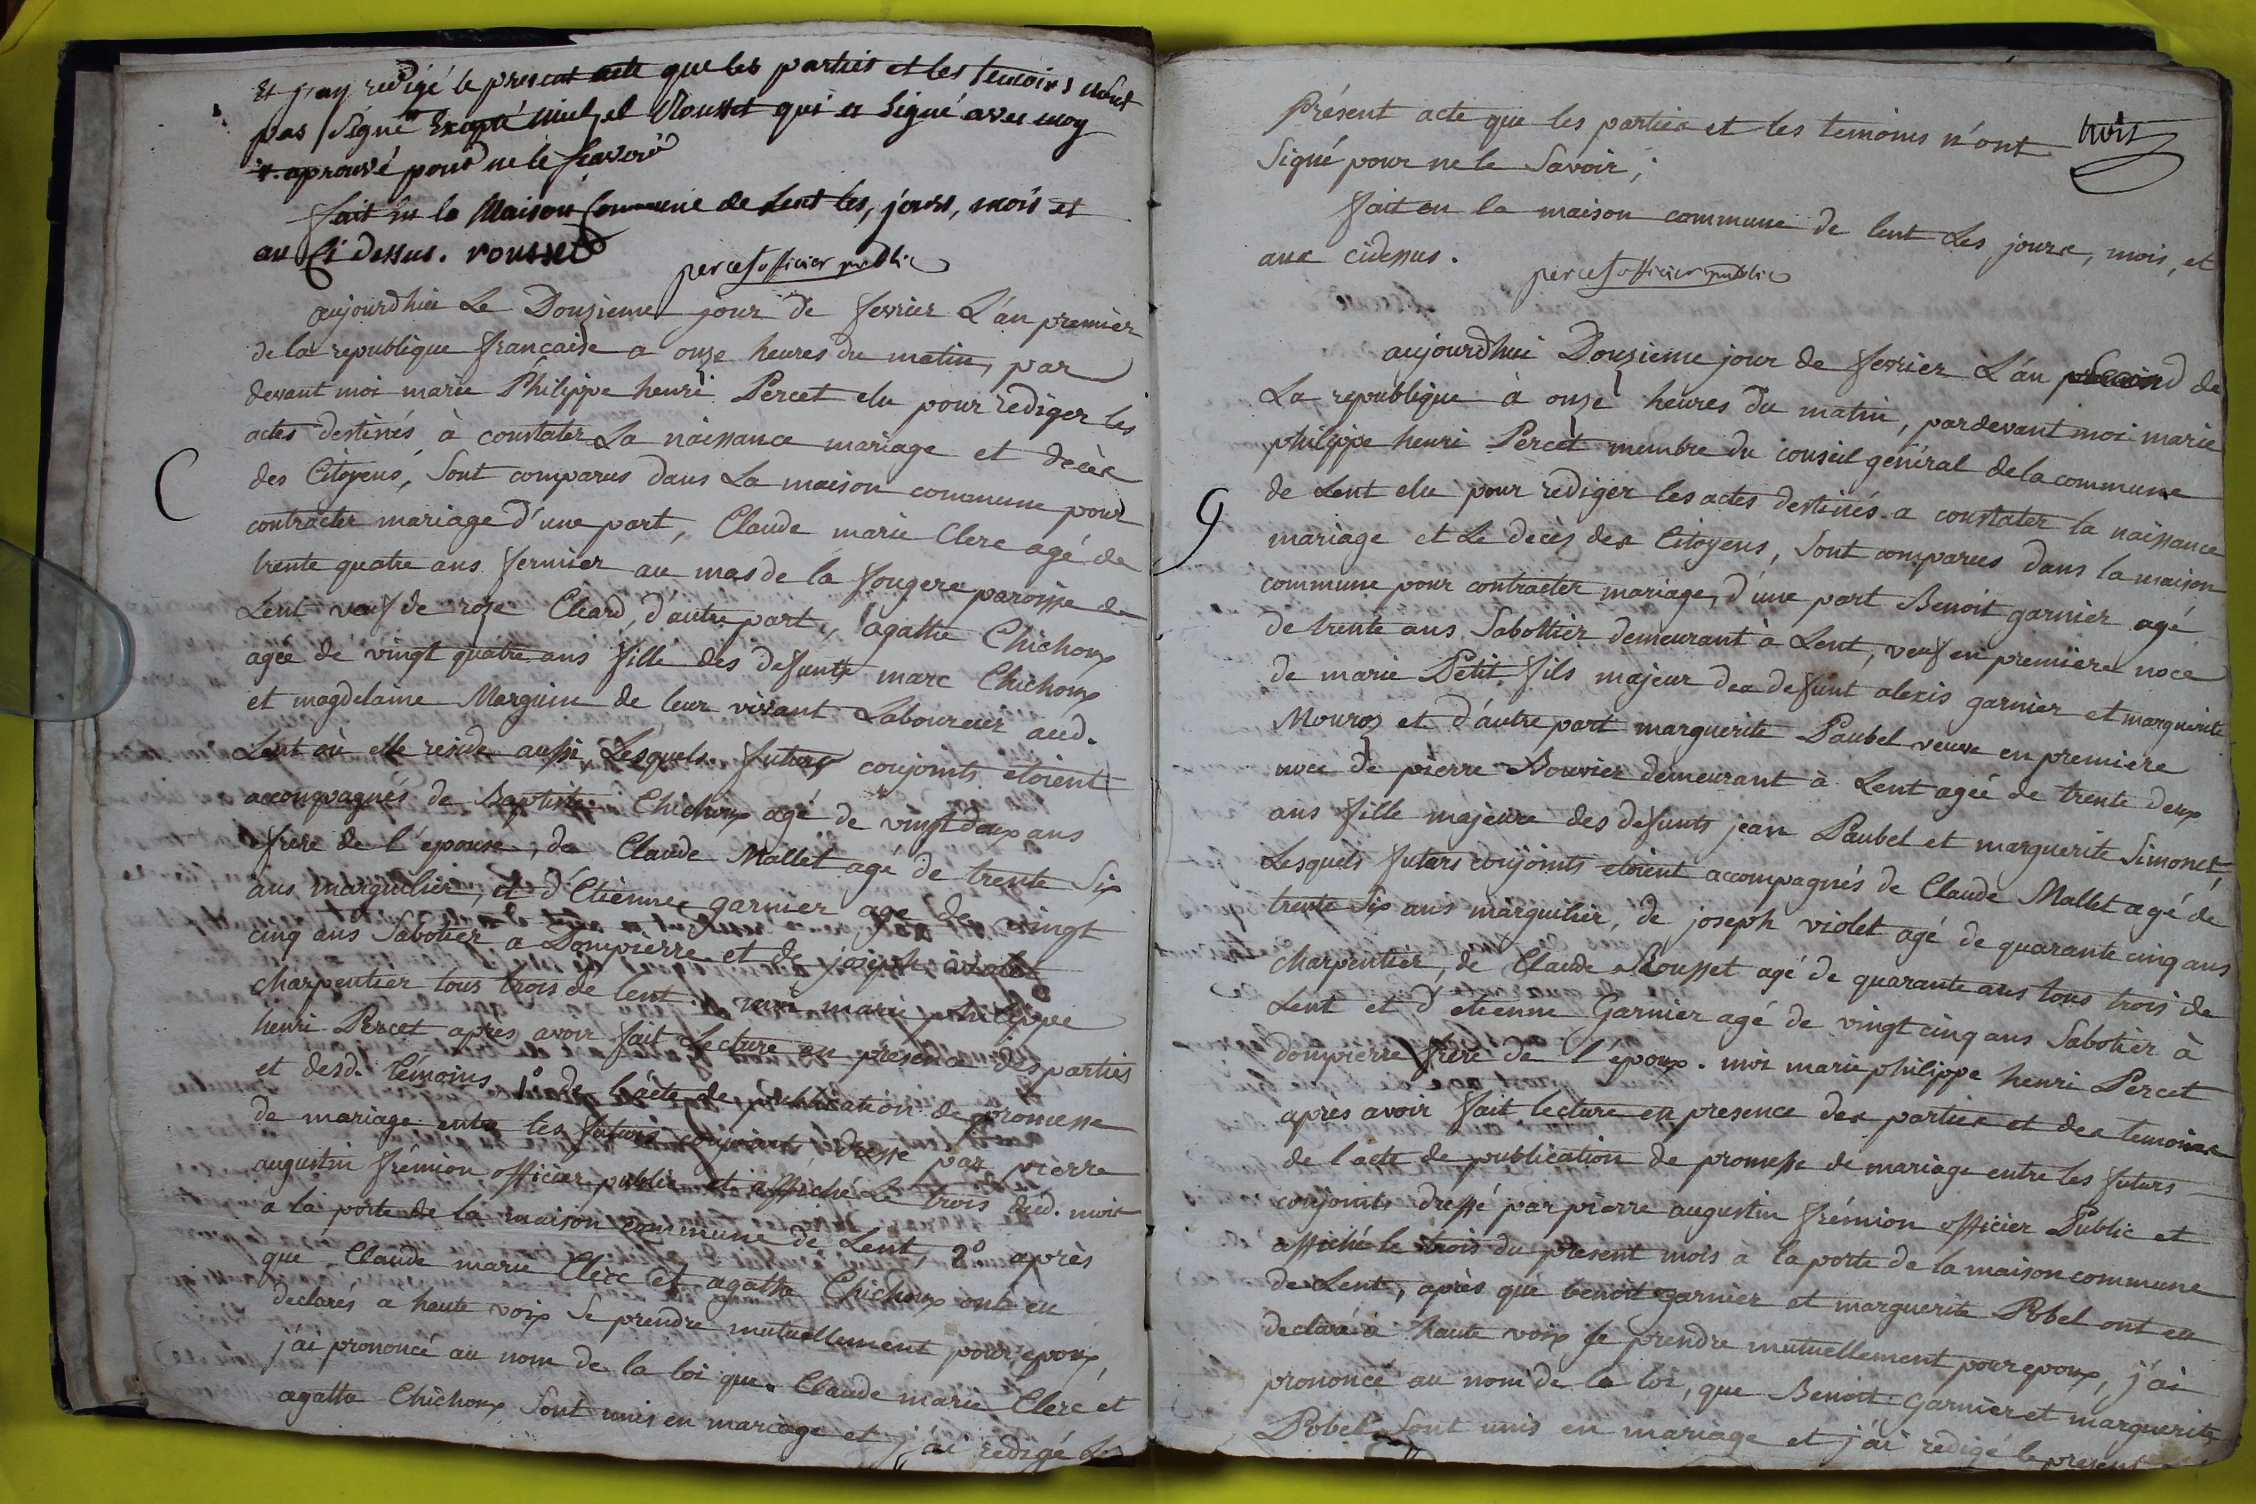 Et j'ay redigé le present acte que les parties et les temoins n'ont
pas signé Excepté Miel, et Rousset qui a signé avec moy
aprouvé pour ne le scavoir
fait en la Maison Commune de Lent les, jours, mois et
an Ci dessus. rousset
percet officier public
aujourdhui Le Douzieme jour de fevrier L'an premier
de la republique francaise a onze heures du matin, par
devant moi marie Philippe henri Percet elu pour rediger les
actes destinés à constater La naissance mariage et decès
des Citoyens, Sont comparus dans La maison commune pour
C
contracter mariage d'une part, Claude marie Clerc agé de
trente quatre ans fermier au mas de la fougere paroisse de
Lent veuf de roze Cleard, d'autre part, agathe Chichoux
agée de vingt quatre ans fille des defunts marc Chichoux
et magdelaine Marguin de leur vivant Laboureur aud.
Lent où elle reside aussi, Lesquels futurs conjoints etoient
accompagnés de Baptiste Chichoux agé de vingt deux ans
frere de l'epouse, de Claude Mallet agé de trente Six
ans marguilier, et d'Etienne garnier agé de vingt
cinq ans Sabotier a Dompierre et de joseph violet
charpentier tous trois de lent. moi marie philippe
henri Percet après avoir fait Lecture en presence des parties
et desd. témoins 1° de l'acte de publication de promesse
de mariage entre les futurs conjoints dressé par pierre
augustin frémion officier public et affiché le trois dud. mois
a la porte de la maison commune de Lent, 2° après
que Claude marie Clerc et agathe Chichoux ont eu
declarés a haute voix Se prendre mutuellement pour epoux,
j'ai prononcé au nom de la loi que Claude marie Clerc et
agatha Chichoux Sont unis en mariage et j'ai redigé Le
trois
Présent acte que les parties et les temoins n'ont
Signé pour ne le Savoir;
fait en la maison commune de lent Les jours, mois, et
ans cidessus.
percet officier public
aujourdhui Douzieme jour de fevrier L'an Second de
La republique à onze heures du matin, pardevant moi marie
philippe henri Percet membre du conseil général de la commune
de Lent elu pour rediger les actes destinés a constater la naissance
9
mariage et Le decès des Citoyens, Sont comparus dans la maison
commune pour contracter mariage, d'une part Benoit garnier agé
de trente ans Sabottier demeurant à Lent, veuf en premiere noce
de marie Petit fils majeur des defunt alexis garnier et marguerite
Mouroz et d'autre part marguerite Paubel veuve en premiere
noce de pierre Bouvier demeurant à Lent agée de trente deux
ans fille majeure des defunts jean Paubel et marguerite Simonet,
Lesquels futurs conjoints etoient accompagnés de Claude Mallet agé de
trente Six ans marguilier, de joseph violet agé de quarante cinq ans
charpentier, de Claude Rousset agé de quarante ans tous trois de
Lent et d'etienne Garnier agé de vingt cinq ans Sabotier à
dompierre frere de l'epoux. moi marie philippe henri Percet
après avoir fait lecture en presence des parties et des temoins
de l'acte de publication de promesse de mariage entre les futurs
conjoints dressé par pierre augustin frémion officier Public et
affiché le trois du present mois a la porte de la maison commune
de Lent, après que benoit garnier et marguerite Pobel ont eu
declaré à haute voix se prendre mutuellement pour epoux, j'ai
prononcé au nom de la loi, que Benoit Garnier et marguerite
Pobel Sont unis en mariage et j'ai redigé le present